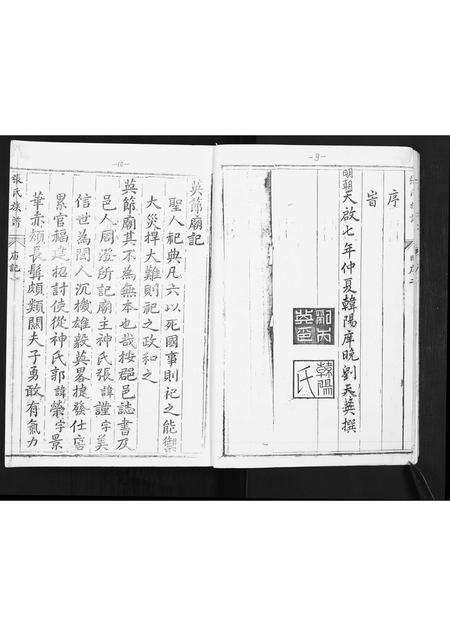 -9-
序
峕
明朝天啟七年仲夏韓陽庠晚劉天英撰
韓陽
氏
-10-
英節廟記
聖人祀典凡六以死國事則祀之能禦
大災捍大難則祀之政和之
英節廟其不為無本也哉按郡邑誌書及
邑人周澄所記廟主神氏張諱謹字美
信世為閩人沉機雄毅英畧捷發仕唐
累官福建招討使從神氏郭諱榮字景
華赤頰長髯頗類關夫子勇敢有氣力
張氏族譜
廟記